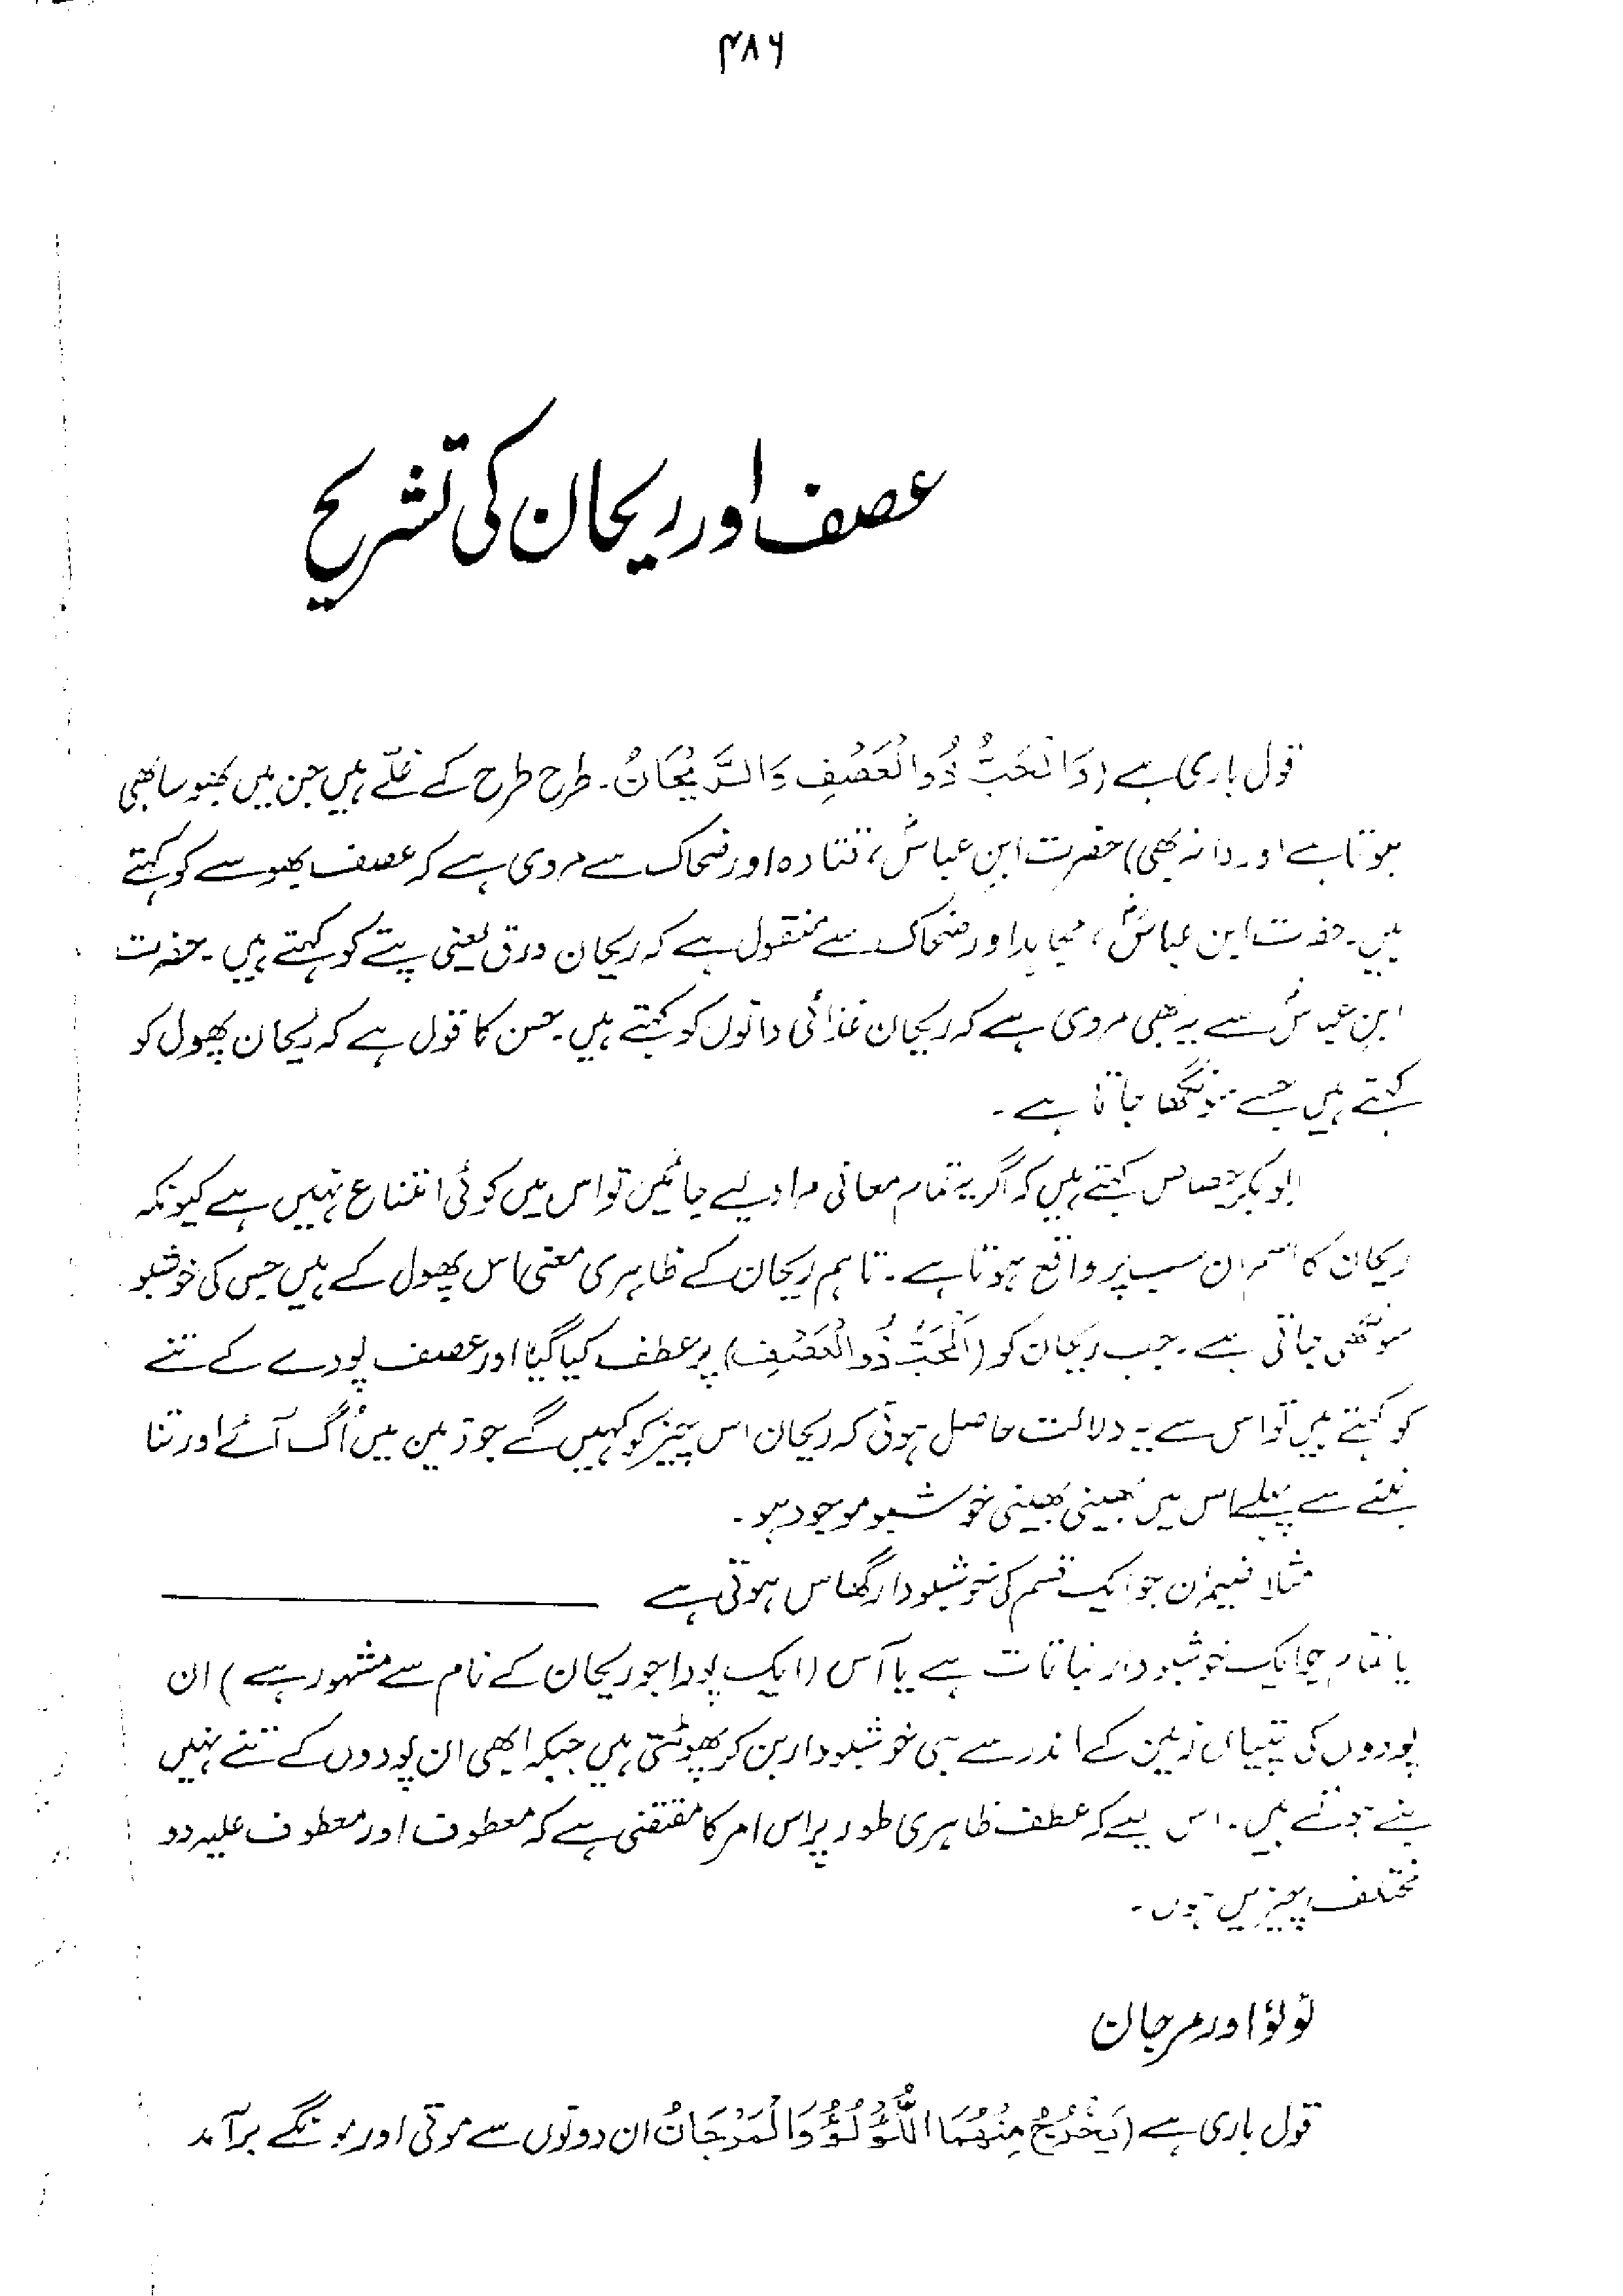 ۴۸۶
عصف اور ریحان کی تشریح
قول باری ہے (وَالْحَبُّ ذُو الْعَصْفِ وَالرَّیْحَانُ۔ طرح طرح کے غلّے ہیں جن میں بھوسا بھی
ہوتا ہے اور دانہ بھی) حضرت ابن عباسؓ، قتادہ اور ضحاک سے مروی ہے کہ عصف بھوسے کو کہتے
ہیں۔ حضرت ابن عباسؓ، مجاہد اور ضحاک سے منقول ہے کہ ریحان ورق یعنی پتے کو کہتے ہیں۔ حضرت
ابن عباسؓ سے یہ بھی مروی ہے کہ ریحان غذائی دانوں کو کہتے ہیں۔ حسن کا قول ہے کہ ریحان پھول کو
کہتے ہیں جسے سونگھا جاتا ہے۔
ابوبکر جصاص کہتے ہیں کہ اگر یہ تمام معانی مراد لیے جائیں تو اس میں کوئی امتناع نہیں ہے کیونکہ
ریحان کا اسم ان سب پر واقع ہوتا ہے۔ تاہم ریحان کے ظاہری معنی اس پھول کے ہیں جس کی خوشبو
سونگھی جاتی ہے۔ جب ریحان کو (اَلْحَبُّ ذُو الْعَصْفِ) پر عطف کیا گیا اور عصف پودے کے تنے
کو کہتے ہیں تو اس سے یہ دلالت حاصل ہوئی کہ ریحان اس چیز کو کہیں گے جو زمین میں اُگ آئے اور تنا
بننے سے پہلے اس میں بھینی بھینی خوشبو موجود ہو۔
مثلا ضیمران جو ایک قسم کی خوشبودار گھاس ہوتی ہے
یا نمام جو ایک خوشبودار نباتات ہے یا آس (ایک پودا جو ریحان کے نام سے مشہور ہے) ان
پودوں کی پتیاں زمین کے اندر سے ہی خوشبودار بن کر پھوٹتی ہیں جبکہ ابھی ان پودوں کے تنے نہیں
بنے ہوتے ہیں۔ اس لیے کہ عطف ظاہری طور پر اس امر کا مقتضی ہے کہ معطوف اور معطوف علیہ دو
مختلف چیزیں ہوں۔
لؤلؤ اور مرجان
قول باری ہے (یَخْرُجُ مِنْهُمَا اللُّؤْلُؤُ وَالْمَرْجَانُ ان دونوں سے موتی اور مونگے برآمد